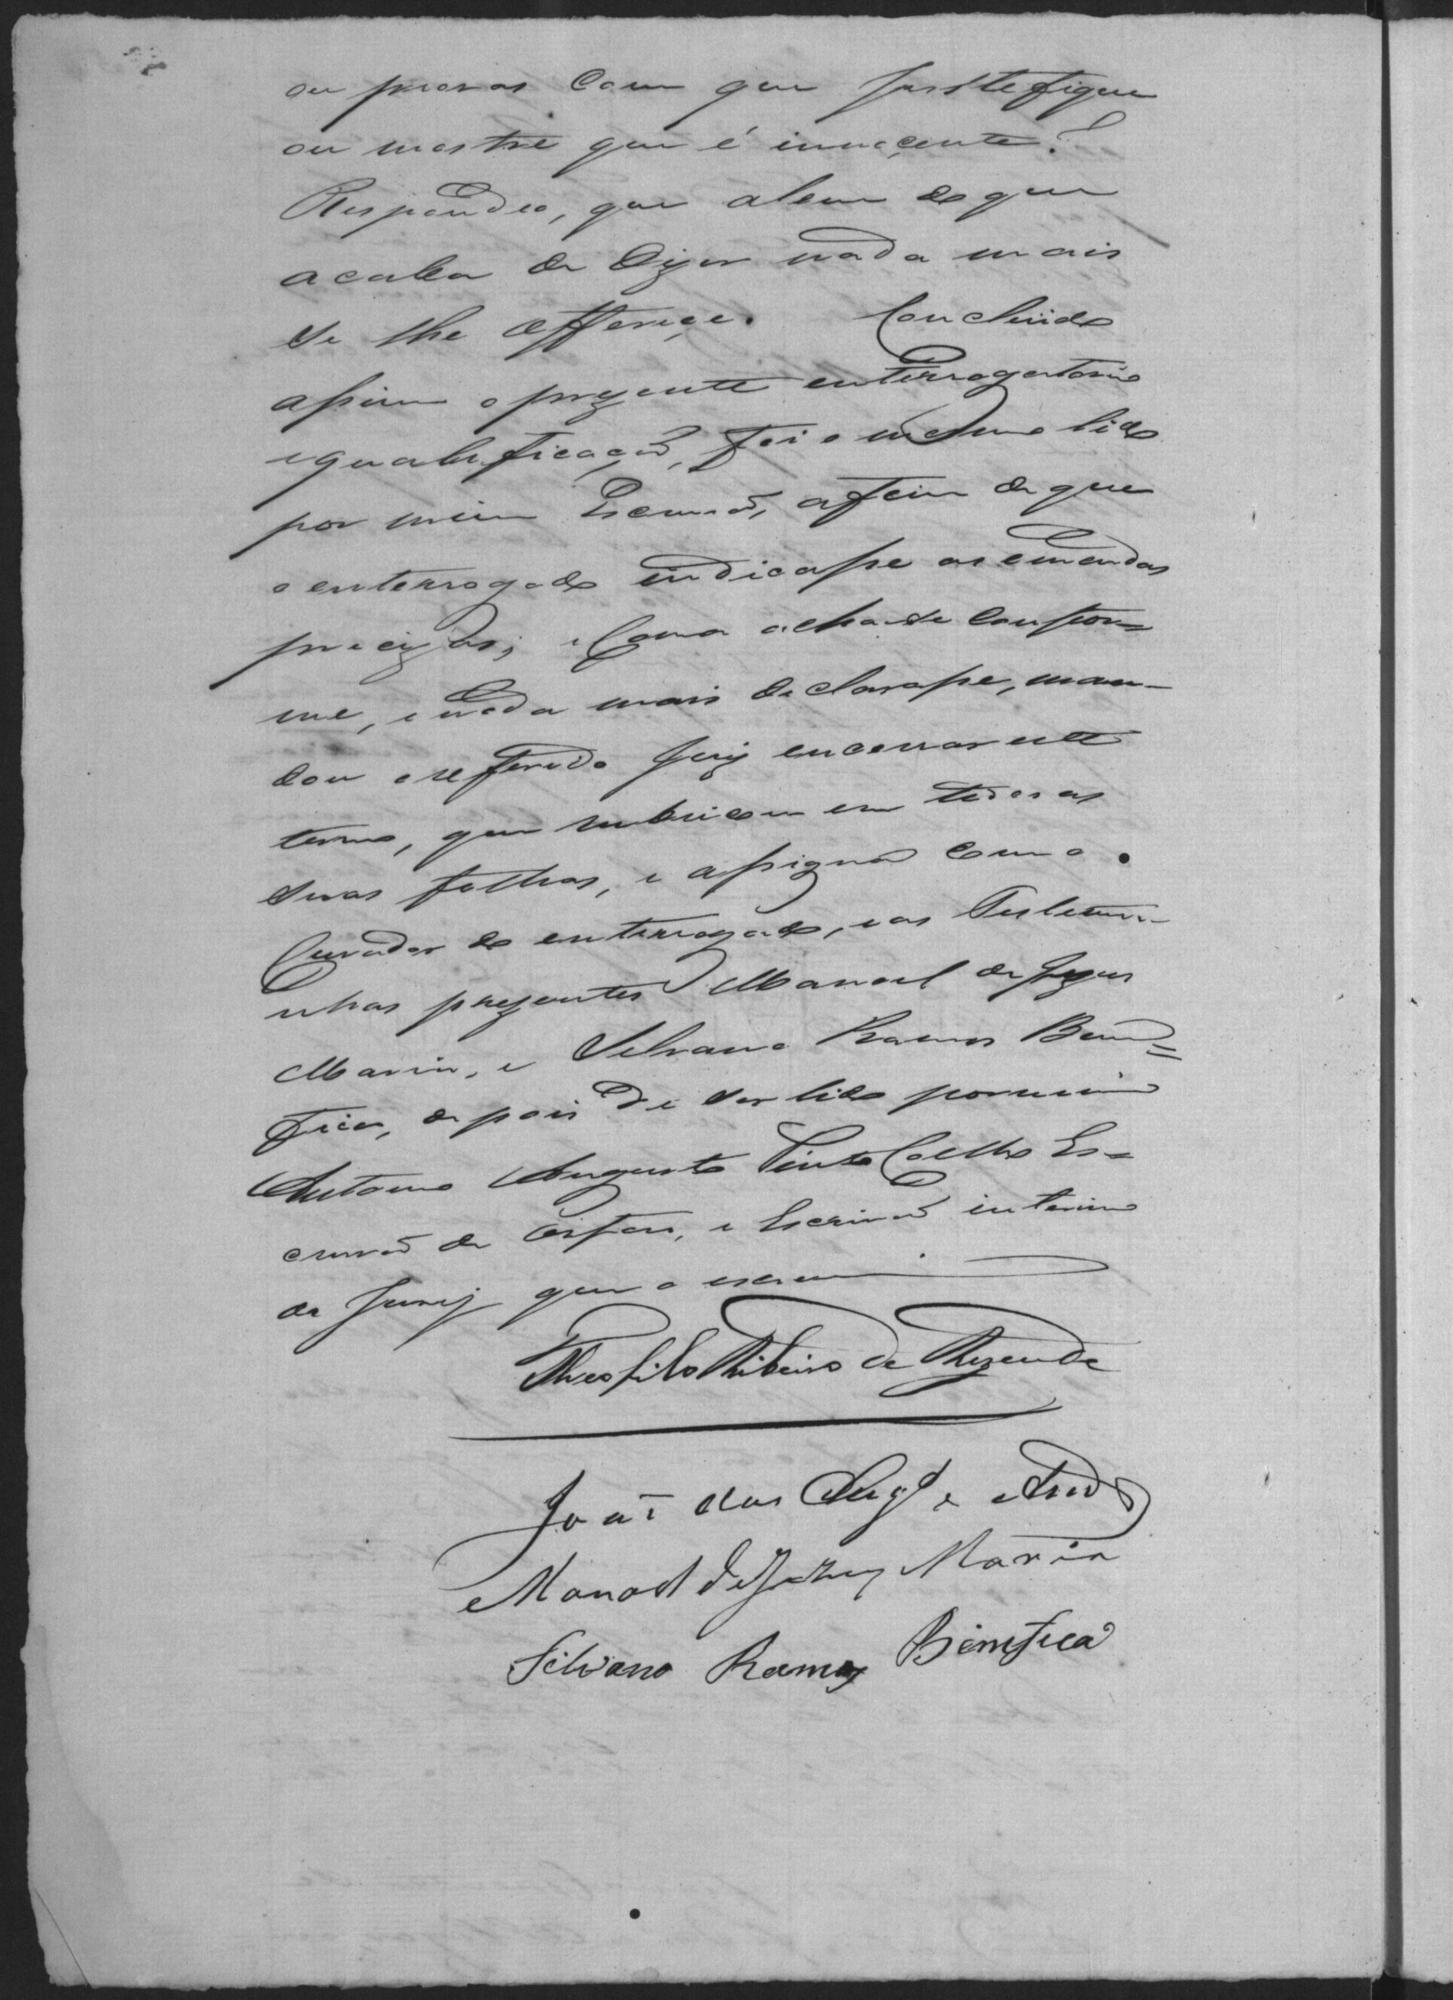 ou provas com que justefique
ou mostre que é innoçente?
Respondeo, que alem do que
acaba de dizer nada mais
se lhe offereçe. Concluido
assim o prezente enterrogatorio
e qualificação, foi o mesmo lido
por mim Escrivão, afim de que
o enterrogado indicasse as emendas
precizas; e como acha-se confor-
me, e nada mais declarasse, man-
dou o refferido Juiz encerrar este
termo, que rubricou em todas as
suas folhas, e assigna com o
Curador do enterrogado, e as Testemu-
nhas prezentes Manoel de Jezus
Maria, e Silvano Ramos Bem-
fica, depois de ser lido por mim
Antonio Augusto Pinto Coelho Es-
crivão de Orfaos, e Escrivão interino
do Jury que o escrevi
Theofilo Ribeiro de Rezende
João dos
Manoel de Jezus Maria
Silvano Ramos Bemfica